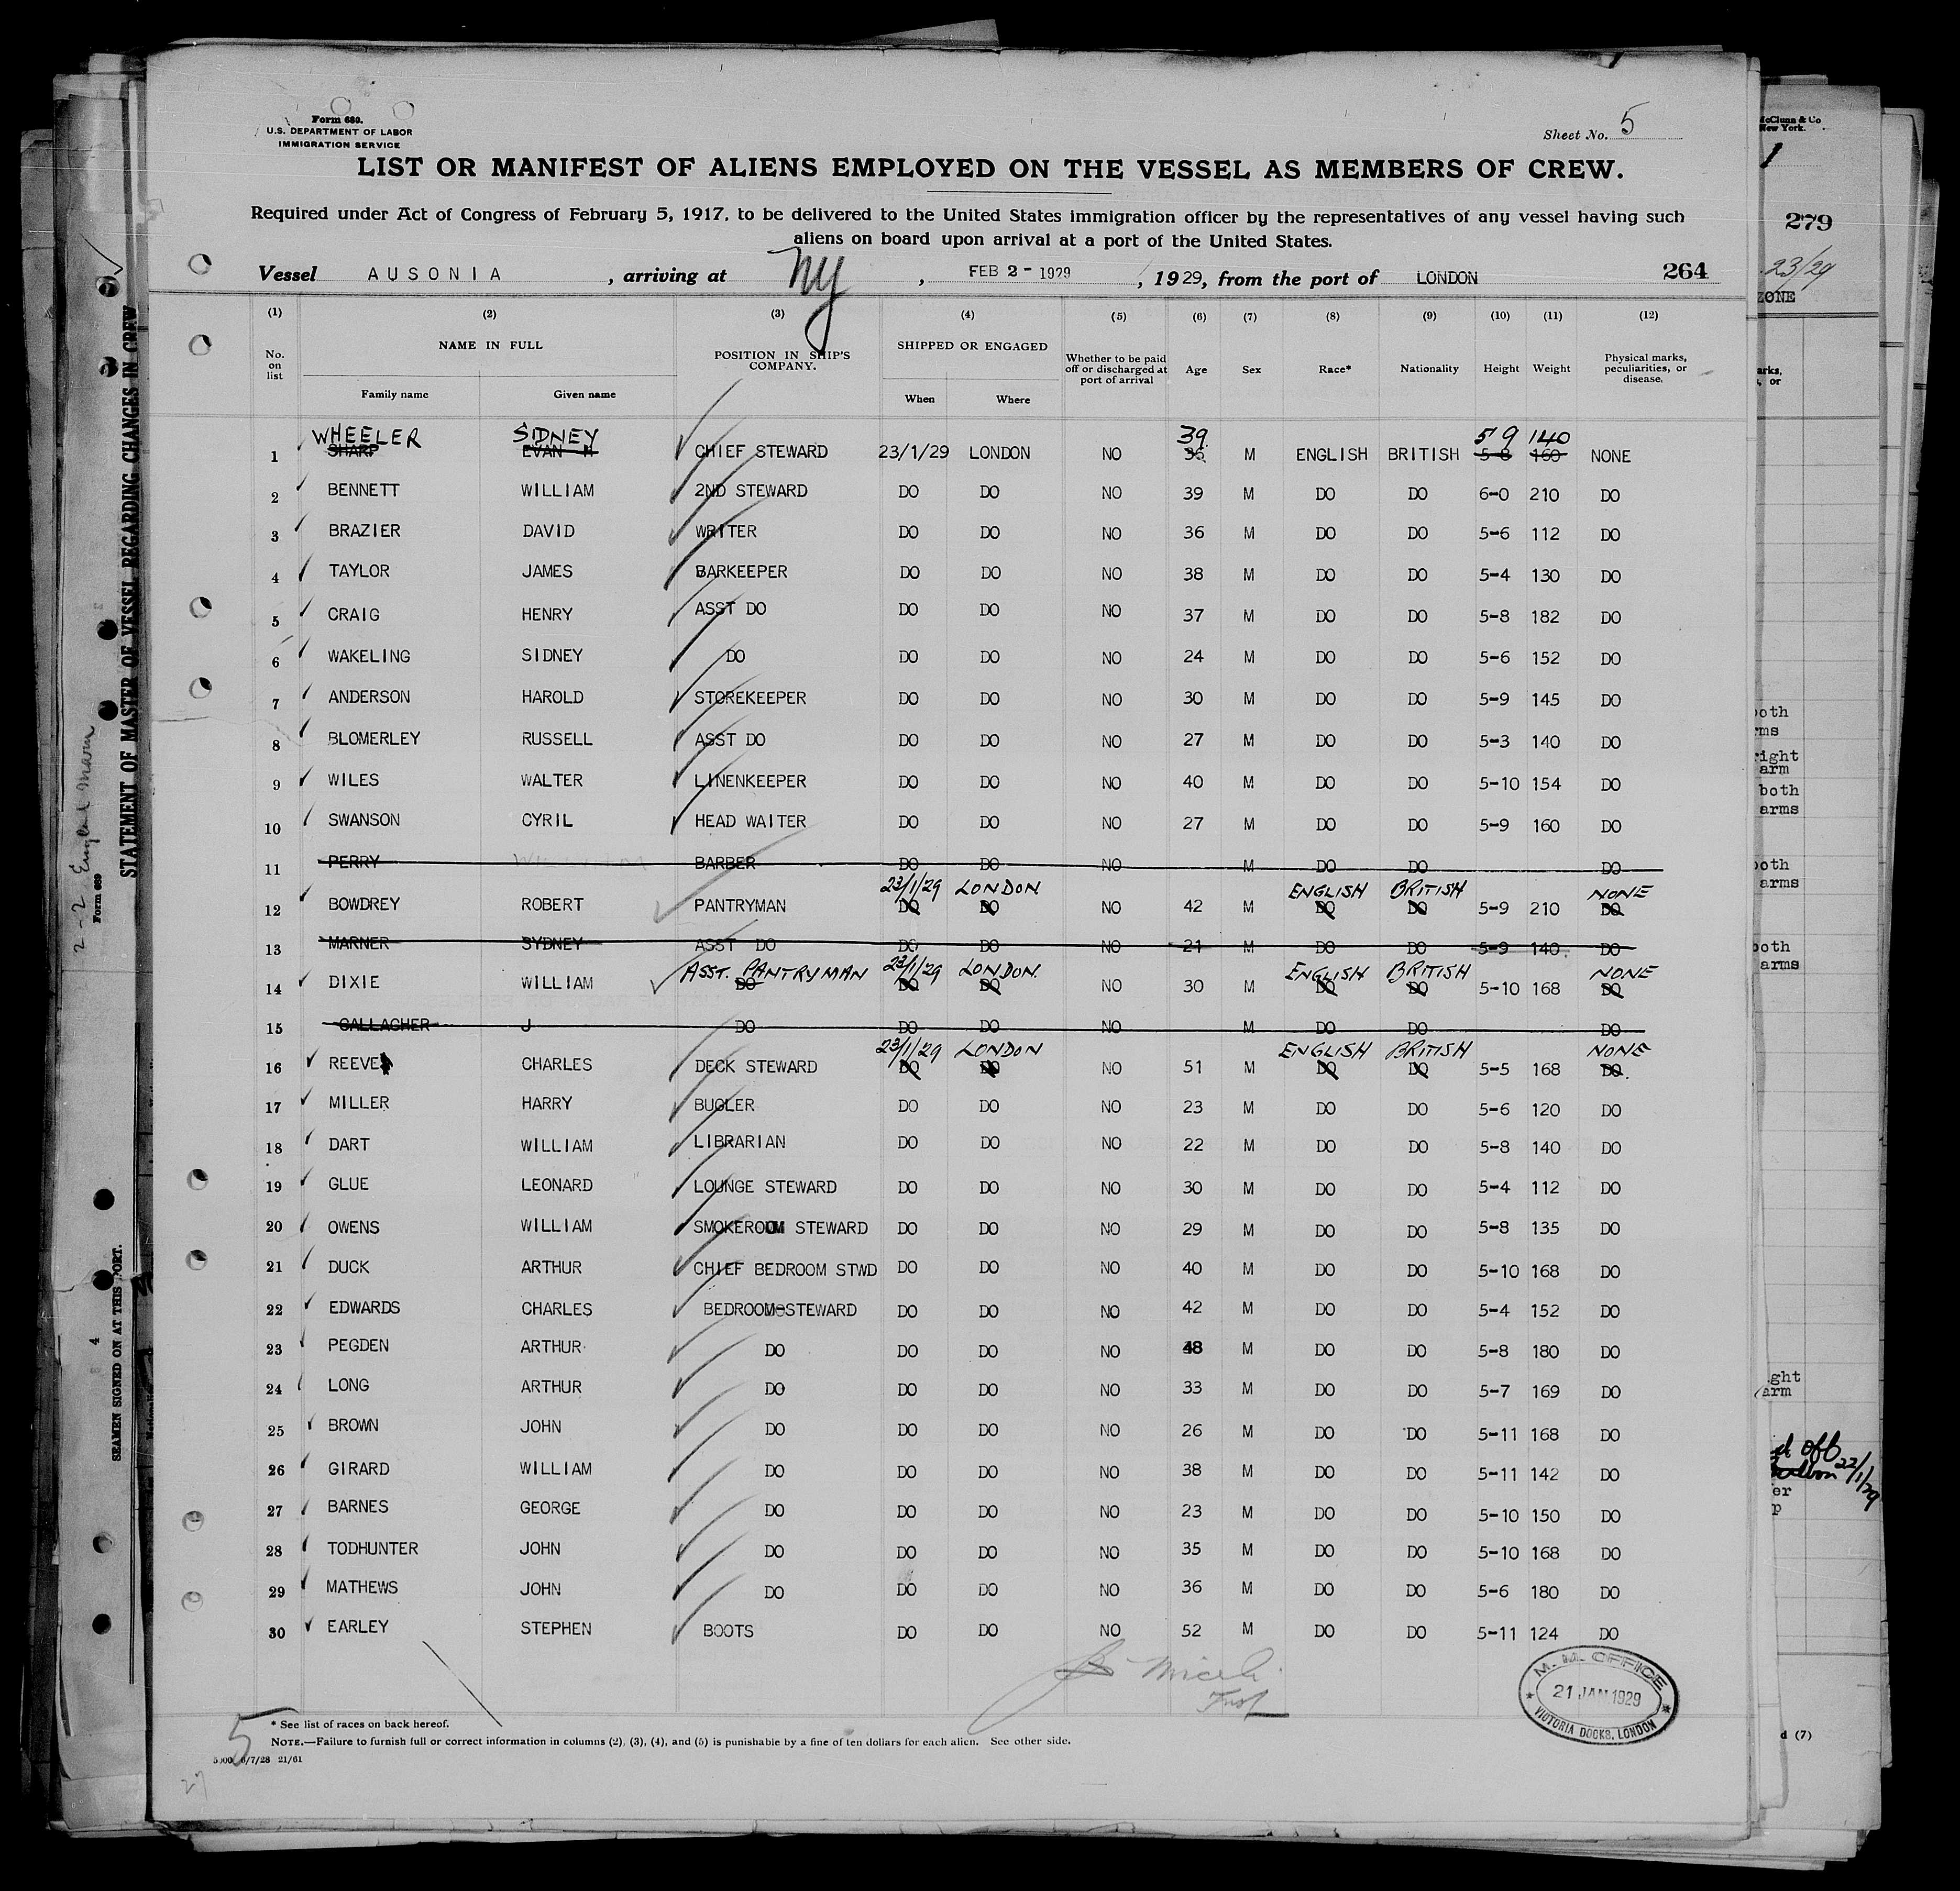 Form 689.
U.S. DEPARTMENT OF LABOR
IMMIGRATION SERVICE
Sheet No. 5
LIST OR MANIFEST OF ALIENS EMPLOYED ON THE VESSEL AS MEMBERS OF CREW.
Required under Act of Congress of February 5, 1917, to be delivered to the United States immigration officer by the representatives of any vessel having such
aliens on board upon arrival at a port of the United States.
Vessel AUSONIA , arriving at NY , FEB 2 - 1929 , 1929, from the port of LONDON 264
(1) (2) (3) (4) (5) (6) (7) (8) (9) (10) (11) (12)
No. on list NAME IN FULL Family name Given name POSITION IN SHIP'S COMPANY. SHIPPED OR ENGAGED When Where Whether to be paid off or discharged at port of arrival Age Sex Race* Nationality Height Weight Physical marks, peculiarities, or disease.
WHEELER SIDNEY 39 5 9 140
1 SHARP EVAN H CHIEF STEWARD 23/1/29 LONDON NO 36 M ENGLISH BRITISH 5-8 160 NONE
2 BENNETT WILLIAM 2ND STEWARD DO DO NO 39 M DO DO 6-0 210 DO
3 BRAZIER DAVID WRITER DO DO NO 36 M DO DO 5-6 112 DO
4 TAYLOR JAMES BARKEEPER DO DO NO 38 M DO DO 5-4 130 DO
5 CRAIG HENRY ASST DO DO DO NO 37 M DO DO 5-8 182 DO
6 WAKELING SIDNEY DO DO DO NO 24 M DO DO 5-6 152 DO
7 ANDERSON HAROLD STOREKEEPER DO DO NO 30 M DO DO 5-9 145 DO
8 BLOMERLEY RUSSELL ASST DO DO DO NO 27 M DO DO 5-3 140 DO
9 WILES WALTER LINENKEEPER DO DO NO 40 M DO DO 5-10 154 DO
10 SWANSON CYRIL HEAD WAITER DO DO NO 27 M DO DO 5-9 160 DO
11 PERRY BARBER DO DO NO M DO DO DO
23/1/29 LONDON ENGLISH BRITISH NONE
12 BOWDREY ROBERT PANTRYMAN DO DO NO 42 M DO DO 5-9 210 DO
13 MARNER SYDNEY ASST DO DO DO NO 21 M DO DO 5-9 140 DO
ASST. PANTRYMAN 23/1/29 LONDON. ENGLISH BRITISH NONE
14 DIXIE WILLIAM DO DO DO NO 30 M DO DO 5-10 168 DO
15 GALLAGHER J DO DO DO NO M DO DO DO
23/1/29 LONDON ENGLISH BRITISH NONE
16 REEVE CHARLES DECK STEWARD DO DO NO 51 M DO DO 5-5 168 DO.
17 MILLER HARRY BUGLER DO DO NO 23 M DO DO 5-6 120 DO
18 DART WILLIAM LIBRARIAN DO DO NO 22 M DO DO 5-8 140 DO
19 GLUE LEONARD LOUNGE STEWARD DO DO NO 30 M DO DO 5-4 112 DO
20 OWENS WILLIAM SMOKEROOM STEWARD DO DO NO 29 M DO DO 5-8 135 DO
21 DUCK ARTHUR CHIEF BEDROOM STWD DO DO NO 40 M DO DO 5-10 168 DO
22 EDWARDS CHARLES BEDROOM-STEWARD DO DO NO 42 M DO DO 5-4 152 DO
23 PEGDEN ARTHUR DO DO DO NO 48 M DO DO 5-8 180 DO
24 LONG ARTHUR DO DO DO NO 33 M DO DO 5-7 169 DO
25 BROWN JOHN DO DO DO NO 26 M DO DO 5-11 168 DO
26 GIRARD WILLIAM DO DO DO NO 38 M DO DO 5-11 142 DO
27 BARNES GEORGE DO DO DO NO 23 M DO DO 5-10 150 DO
28 TODHUNTER JOHN DO DO DO NO 35 M DO DO 5-10 168 DO
29 MATHEWS JOHN DO DO DO NO 36 M DO DO 5-6 180 DO
30 EARLEY STEPHEN BOOTS DO DO NO 52 M DO DO 5-11 124 DO
M. M. OFFICE
21 JAN 1929
VICTORIA DOCKS, LONDON
5
* See list of races on back hereof.
NOTE.—Failure to furnish full or correct information in columns (2), (3), (4), and (5) is punishable by a fine of ten dollars for each alien. See other side.
6/7/28 21/61
27
STATEMENT OF MASTER OF VESSEL REGARDING CHANGES IN CREW
Form 689
2-2 England
SEAMEN SIGNED ON AT THIS PORT.
4
McClunn & Co
New York.
1
279
23/29
ZONE
arks,
, or
both
rms
right
arm
both
arms
both
arms
both
arms
ght
arm
22/1/29
er
p
d (7)